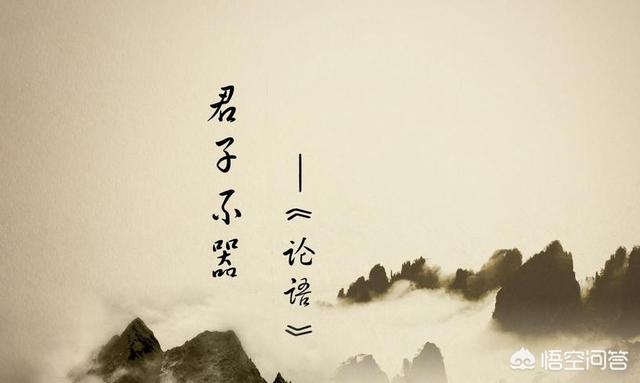 君子不器
—《论语》
悟空问答